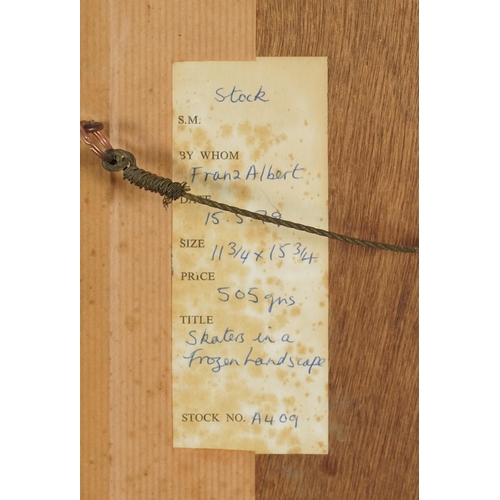 Stock
S.M.
BY WHOM
Franz Albert
DATE
15.5.79
SIZE 11 3/4 x 15 3/4
PRICE
505 gns
TITLE
Skaters in a
Frozen Landscape
STOCK NO. A409